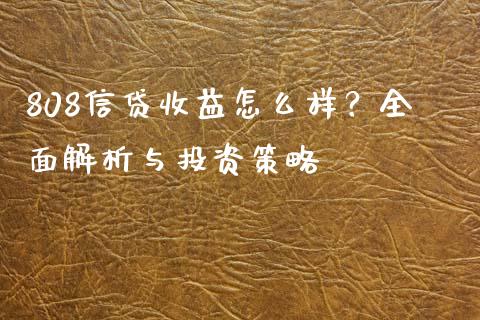 808信贷收益怎么样？全
面解析与投资策略